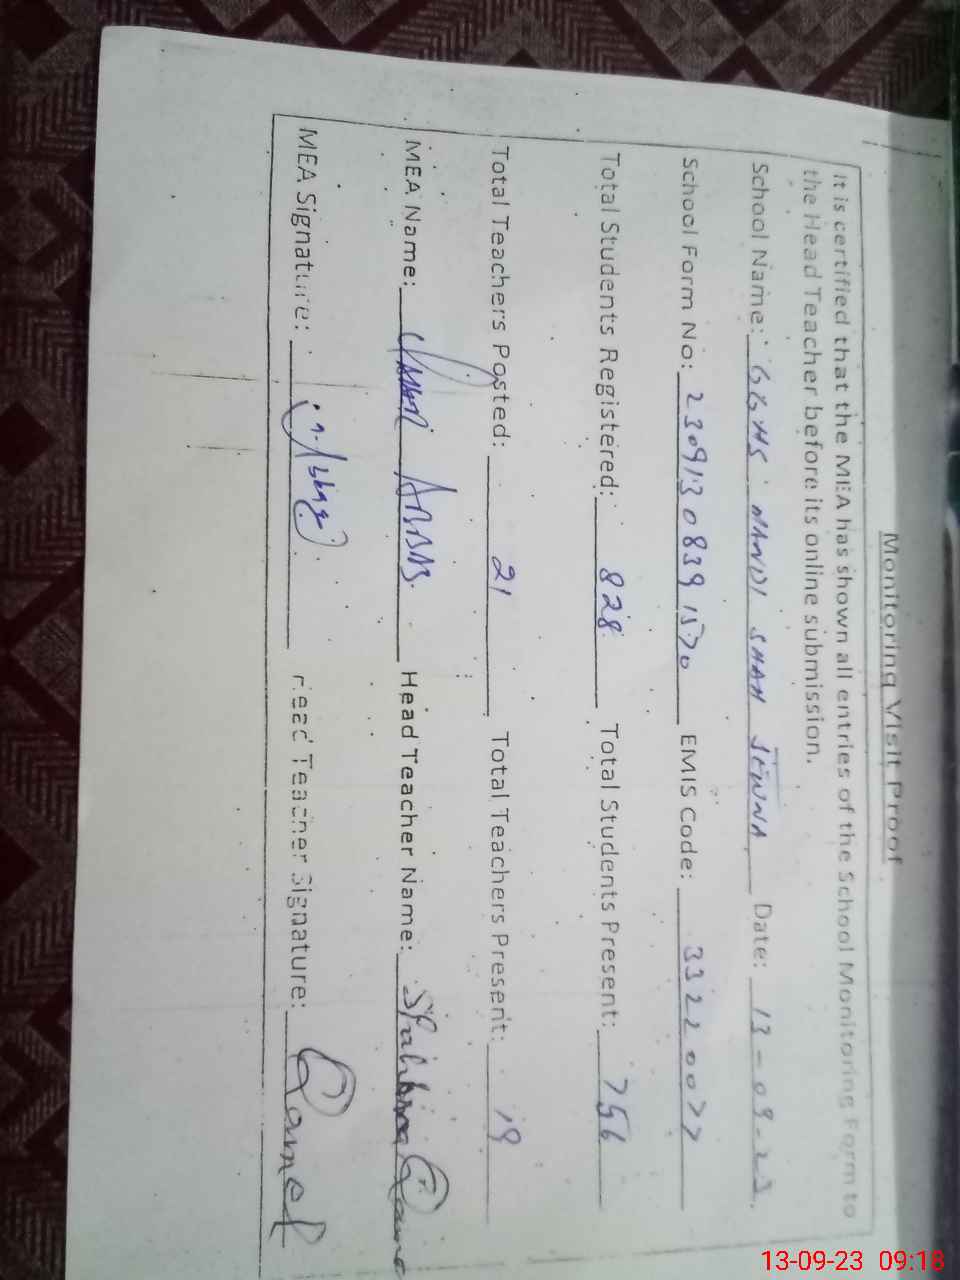 Monitoring Visit Proof
It is certified that the MEA has shown all entries of the School Monitoring Form to
the Head Teacher before its online submission.
School Name: GGHS NANDI SHAH Date: 13-09-23.
School Form No: 23091308391570 EMIS Code: 33220077
Total Students Registered: 828 Total Students Present: 756
Total Teachers Posted: 21 Total Teachers Present: 19
MEA Name: ABBAS. Head Teacher Name:
MEA Signature: Head Teacher Signature:
13-09-23 09:18